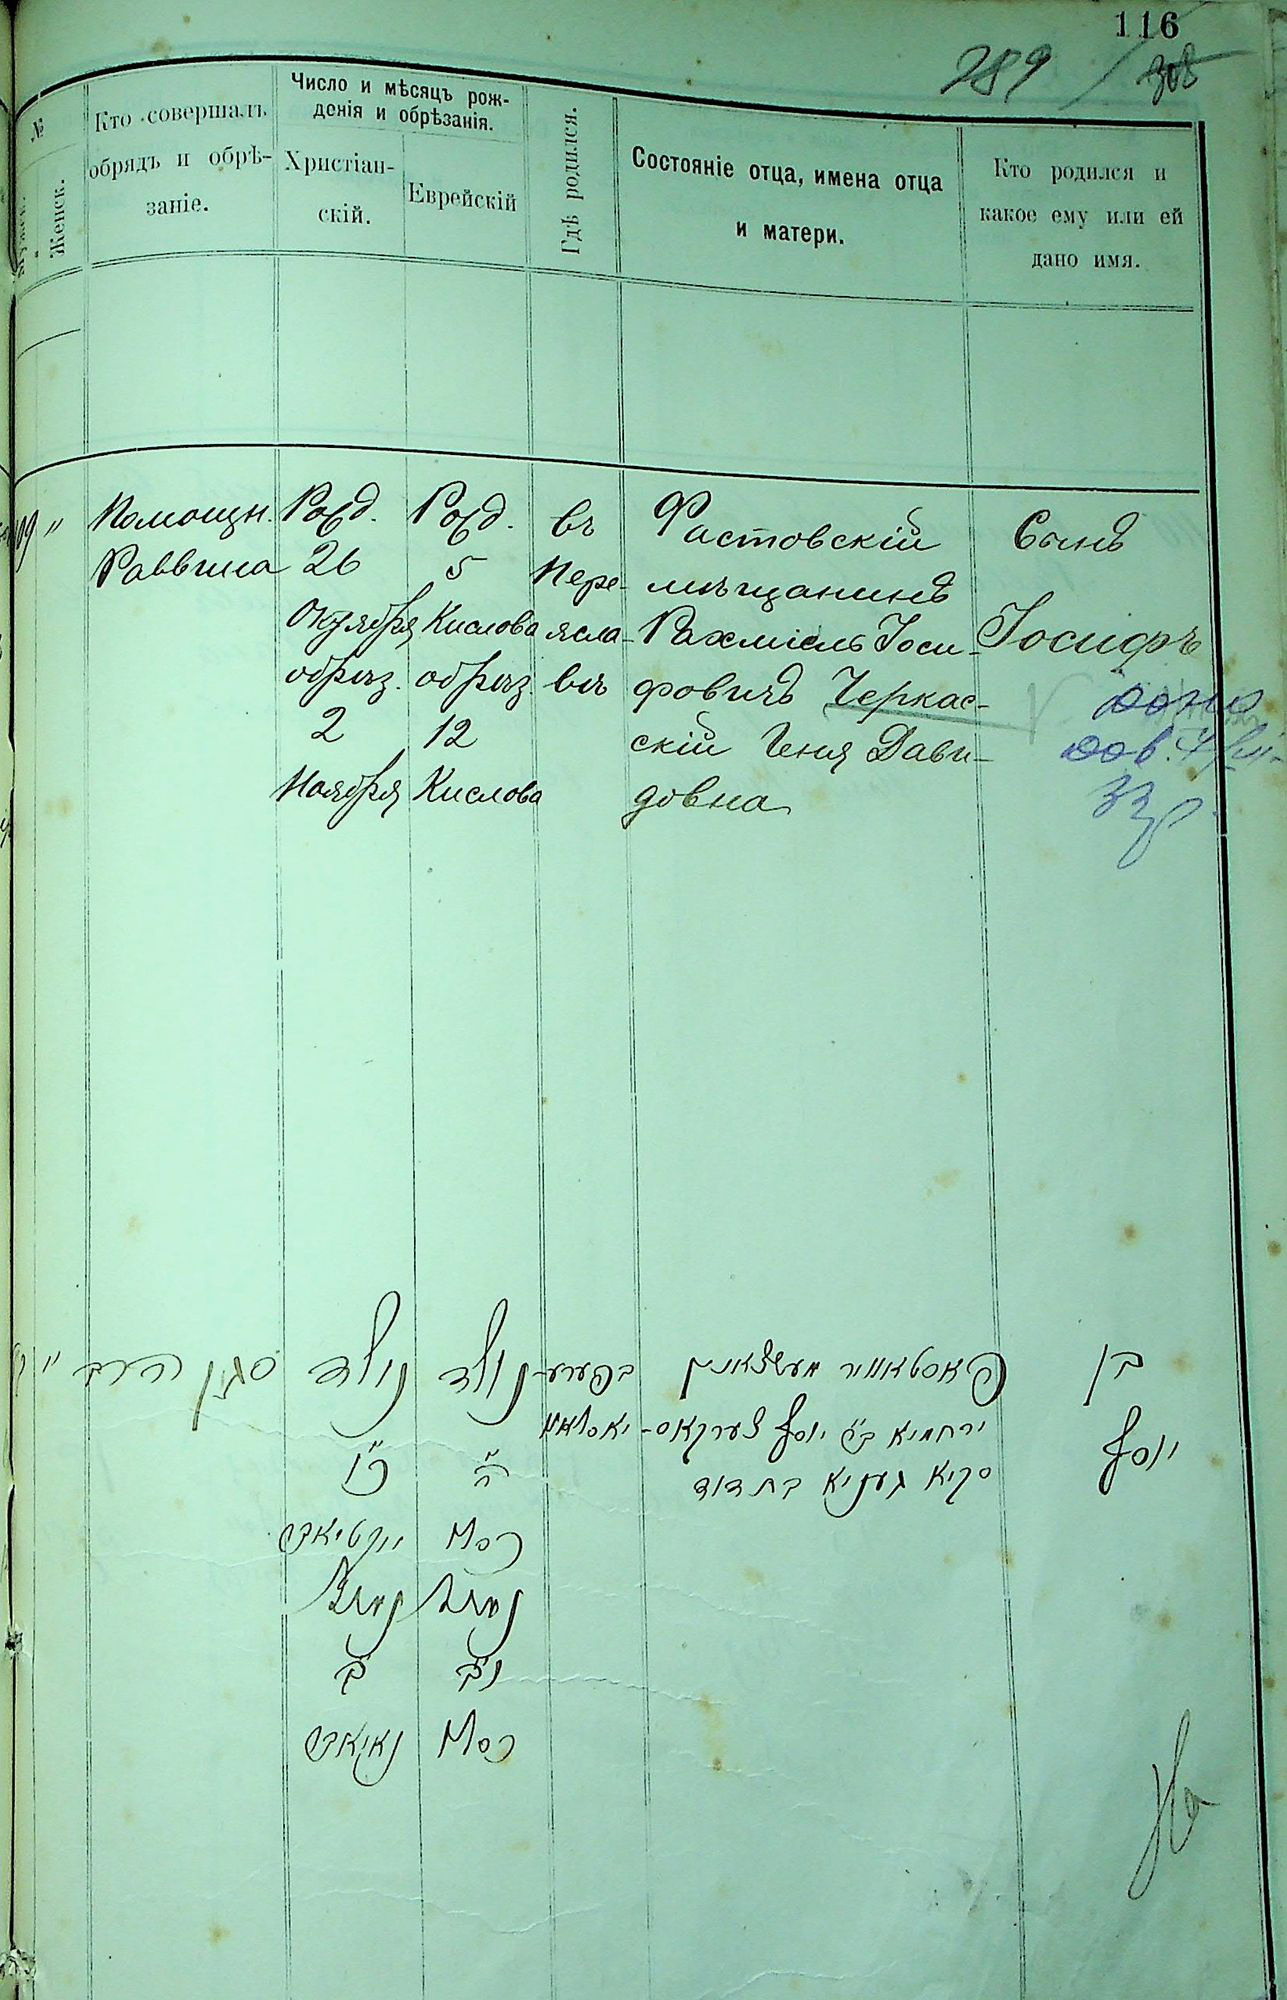 116
289
308
№
Женск.
Кто совершалъ
обрядъ и обрѣ-
заніе.
Число и мѣсяцъ рож-
денія и обрѣзанія.
Христіан-
скій.
Еврейскій
Гдѣ родился.
Состояніе отца, имена отца
и матери.
Кто родился и
какое ему или ей
дано имя.
109 "
Помощн.
Раввина
Рожд.
26
Октября
обрѣз.
2
Ноября
Рожд.
5
Кислова
обрѣз.
12
Кислова
въ
Пере-
ясла-
вѣ
Фастовскій
мѣщанинъ
Рахміель Іоси-
фовичъ Черкас-
скій Геня Дави-
довна
Сынъ
Іосифъ
סגן הרב
נולד
כ״ו
אקטיאבר
נימול
ב׳
נאיאבר
נולד
ה׳
כסלו
נימול
י״ב
כסלו
בפערע-
יאסלאוו
פאסטאווער מעשצאנין
ירחמיא ב״ר יוסף צערקאס-
סקיא געניא בת דוד
בן
יוסף